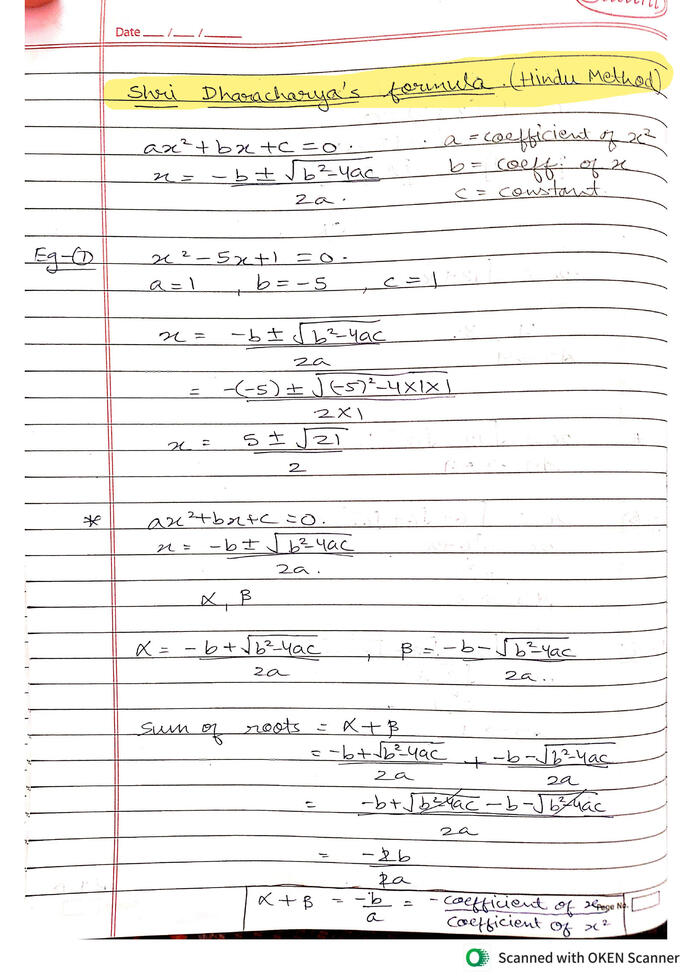 Date ___ / ___ / ______
Shri Dharacharya's formula. (Hindu Method)
ax² + bx + c = 0. a = coefficient of x²
x = -b ± √b²-4ac / 2a. b = coeff: of x
c = constant
Eg-① x² - 5x + 1 = 0.
a = 1, b = -5, c = 1
x = -b ± √b²-4ac / 2a
= -(-5) ± √(-5)²-4×1×1 / 2×1
x = 5 ± √21 / 2
* ax² + bx + c = 0.
x = -b ± √b²-4ac / 2a.
α, β
α = -b + √b²-4ac / 2a, β = -b - √b²-4ac / 2a..
sum of roots = α + β
= -b + √b²-4ac / 2a + -b - √b²-4ac / 2a
= -b + √b²-4ac - b - √b²-4ac / 2a
= -2b / 2a
α + β = -b / a = - coefficient of x / coefficient of x²
Page No.
Scanned with OKEN Scanner